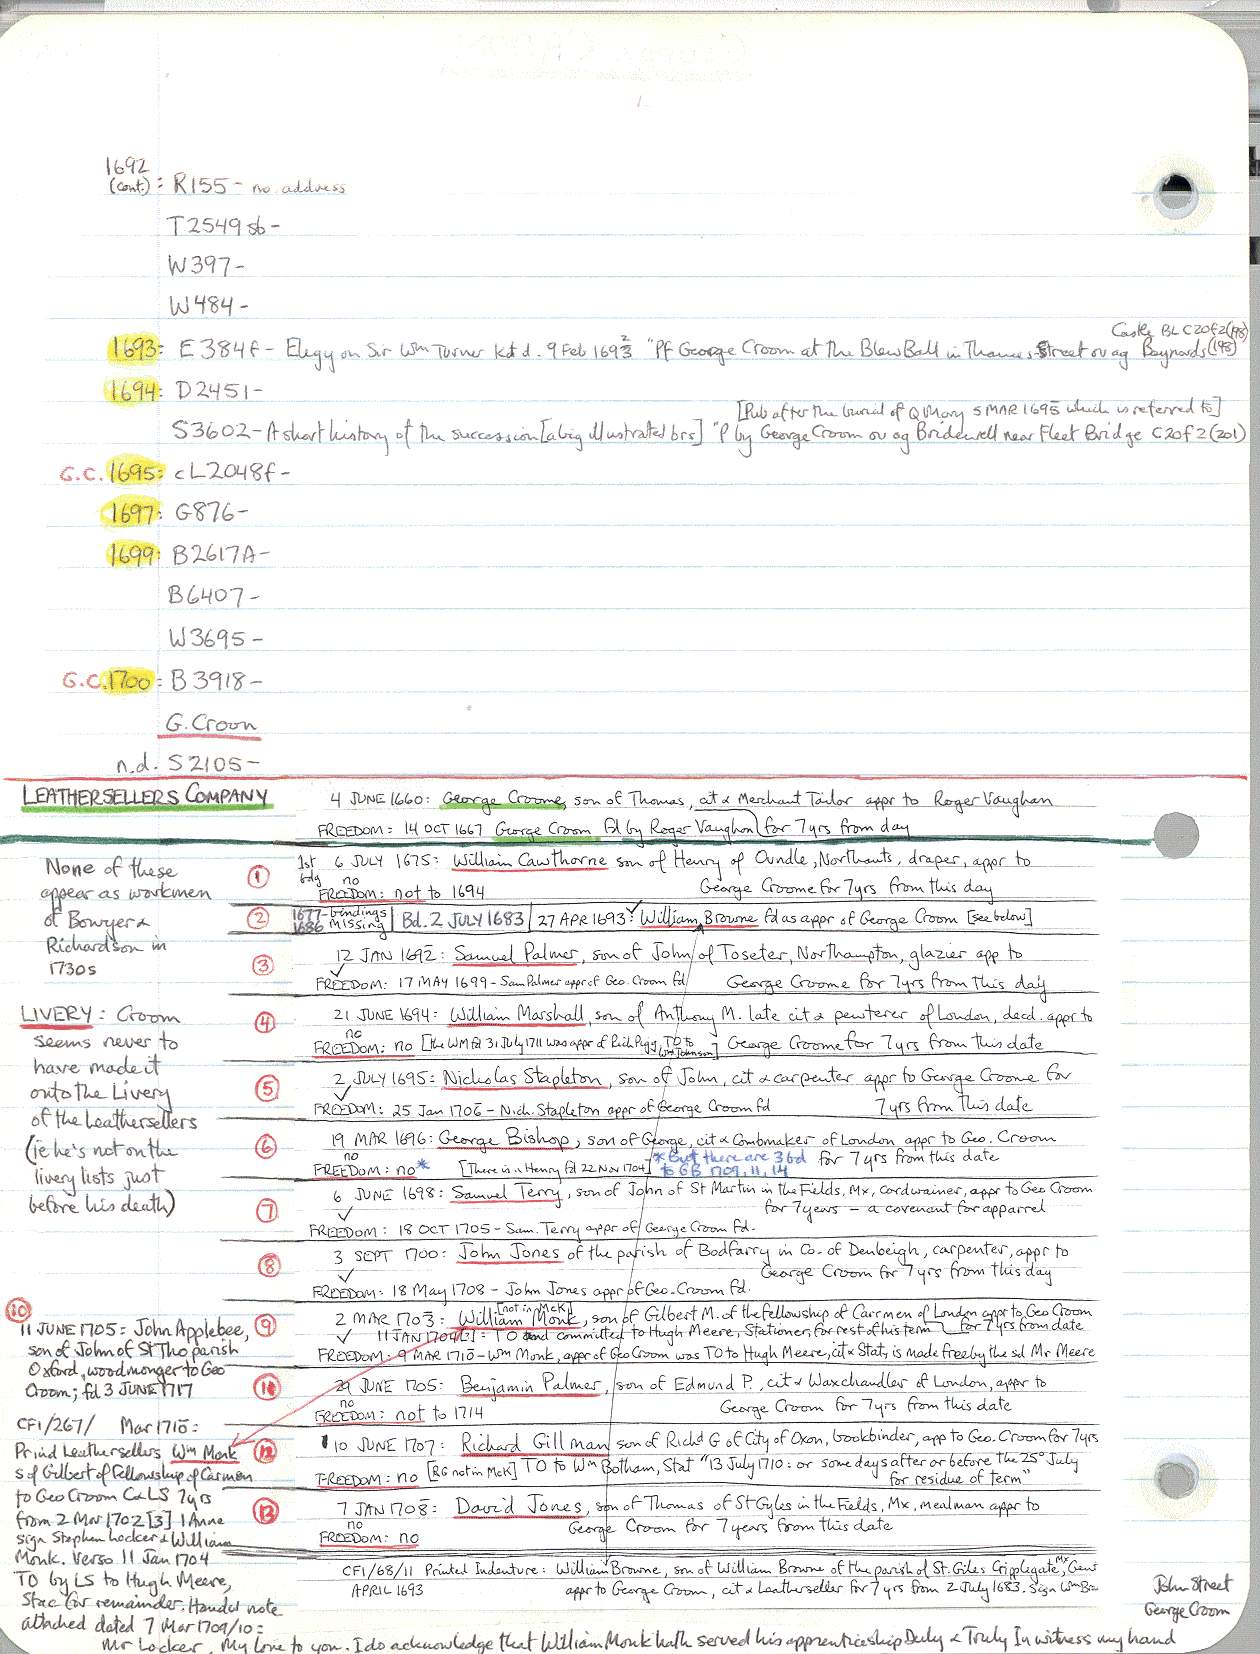 1692
(cont.) : R155 - no address
T2549sb -
W397 -
W484 -
Castle BL C20f2(198)
1693: E384f - Elegy on Sir Wm Turner Kt d. 9 Feb 1692/3 "Pf George Croom at The Blew Ball in Thames-Street ov ag Baynards (198)
1694: D2451 -
[Pub after the burial of Q Mary 5 MAR 1695 which is referred to]
S3602 - A short history of the succession [a big illustrated brs] "P by George Croom ov ag Bridewell near Fleet Bridge C20f2(201)
G.C. 1695: cL2048f -
1697: G876 -
1699: B2617A -
B6407 -
W3695 -
G.C. 1700: B3918 -
G. Croon
n.d. S2105 -
LEATHERSELLERS COMPANY
4 JUNE 1660: George Croome, son of Thomas, cit & Merchant Tailor appr to Roger Vaughan
FREEDOM: 14 OCT 1667 George Croom fd by Roger Vaughan for 7 yrs from day
None of these
appear as workmen
of Bowyer &
Richardson in
1730s
LIVERY: Croom
seems never to
have made it
onto the Livery
of the Leathersellers
(ie he's not on the
livery lists just
before his death)
1 1st bdg 6 JULY 1675: William Cawthorne son of Henry of Oundle, Northants, draper, appr to
George Croome for 7 yrs from this day
no
FREEDOM: not to 1694
2 1677-1686 bindings missing | Bd. 2 JULY 1683 | 27 APR 1693: William Browne fd as appr of George Croom [see below]
3 12 JAN 1692: Samuel Palmer, son of John of Toseter, Northampton, glazier app to
George Croome for 7 yrs from this day
FREEDOM: 17 MAY 1699 - Sam Palmer appr of Geo. Croom fd
4 21 JUNE 1694: William Marshall, son of Anthony M. late cit & pewterer of London, decd. appr to
George Croome for 7 yrs from this date
no
FREEDOM: no [the WM fd 31 July 1711 was appr of Rich Pugg, TO to Wm Johnson]
5 2 JULY 1695: Nicholas Stapleton, son of John, cit & carpenter appr to George Croome for
7 yrs from this date
FREEDOM: 25 Jan 1706 - Nich. Stapleton appr of George Croom fd
6 19 MAR 1696: George Bishop, son of George, cit & Combmaker of London appr to Geo. Croom
for 7 yrs from this date
no
FREEDOM: no* [There is a Henry fd 22 NOV 1704] *But there are 3 bd
to GB 1709, 11, 14
7 6 JUNE 1698: Samuel Terry, son of John of St Martin in the Fields, Mx, cordwainer, appr to Geo Croom
for 7 years - a covenant for apparel
FREEDOM: 18 OCT 1705 - Sam. Terry appr of George Croom fd.
8 3 SEPT 1700: John Jones of the parish of Bodfarry in Co. of Denbeigh, carpenter, appr to
George Croom for 7 yrs from this day
FREEDOM: 18 May 1708 - John Jones appr of Geo. Croom fd.
9 [not in McK]
2 MAR 1703: William Monk, son of Gilbert M. of the fellowship of Carrmen of London appr to Geo Croom
for 7 yrs from date
11 JAN 1704: TO and committed to Hugh Meere, Stationer, for rest of his term
FREEDOM: 9 MAR 1710 - Wm Monk, appr of Geo Croom was TO to Hugh Meere, cit & Stat, is made free by the sd Mr Meere
10
11 JUNE 1705: John Applebee,
son of John of St Tho parish
Oxford, woodmonger to Geo
Croom; fd 3 JUNE 1717
11 29 JUNE 1705: Benjamin Palmer, son of Edmund P., cit & Waxchandler of London, appr to
George Croom for 7 yrs from this date
no
FREEDOM: not to 1714
12 10 JUNE 1707: Richard Gillman son of Richd G of City of Oxon, bookbinder, app to Geo. Croom for 7 yrs
FREEDOM: no [RG not in McK] TO to Wm Botham, Stat "13 July 1710: or some days after or before the 25o July
for residue of term"
13 7 JAN 1708: David Jones, son of Thomas of St Gyles in the Fields, Mx, mealman appr to
George Croom for 7 years from this date
no
FREEDOM: no
CF1/267/ Mar 1710:
Print'd Leathersellers Wm Monk
s of Gilbert of Fellowship of Carmen
to Geo Croom C & LS 7 yrs
from 2 Mar 1702[3] 1 Anne
sign Stephen Locker & William
Monk. Verso 11 Jan 1704
TO by LS to Hugh Meere,
Stac for remainder. Handwr note
attached dated 7 Mar 1709/10:
CF1/68/11 Printed Indenture: William Browne, son of William Browne of the parish of St. Giles Cripplegate Mx, Gent
APRIL 1693 appr to George Croom, cit & Leatherseller for 7 yrs from 2 July 1683. Sign Wm Br
John Street
George Croom
Mr Locker, My love to you. I do acknowledge that William Monk hath served his apprenticeship Duly & Truly In witness my hand